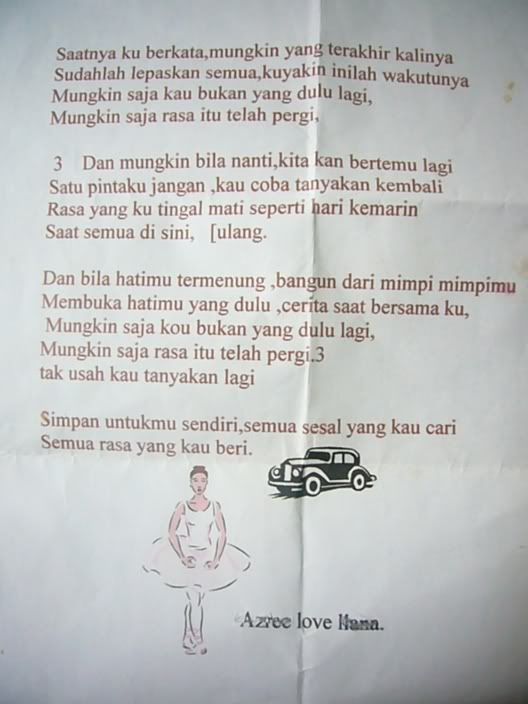 Saatnya ku berkata,mungkin yang terakhir kalinya
Sudahlah lepaskan semua,kuyakin inilah wakutunya
Mungkin saja kau bukan yang dulu lagi,
Mungkin saja rasa itu telah pergi,
3 Dan mungkin bila nanti,kita kan bertemu lagi
Satu pintaku jangan ,kau coba tanyakan kembali
Rasa yang ku tingal mati seperti hari kemarin
Saat semua di sini, [ulang.
Dan bila hatimu termenung ,bangun dari mimpi mimpimu
Membuka hatimu yang dulu ,cerita saat bersama ku,
Mungkin saja kou bukan yang dulu lagi,
Mungkin saja rasa itu telah pergi.3
tak usah kau tanyakan lagi
Simpan untukmu sendiri,semua sesal yang kau cari
Semua rasa yang kau beri.
Azree love